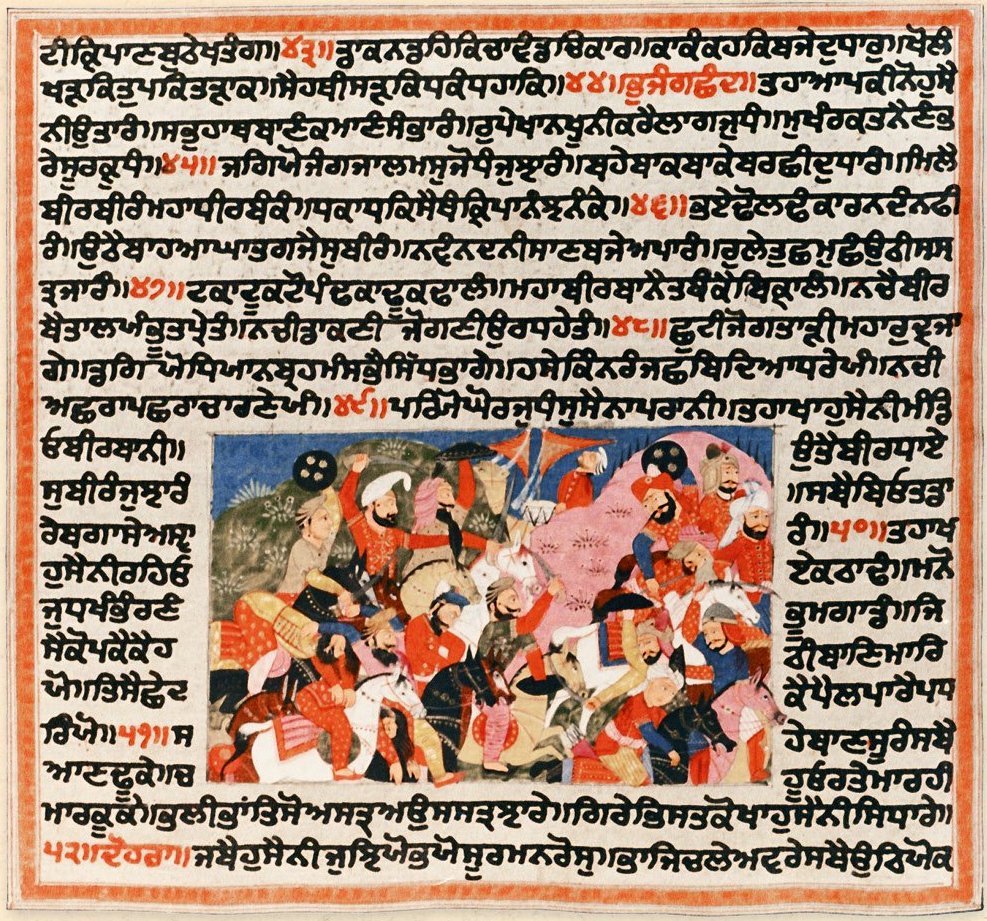 ਟੀਕ੍ਰਿਪਾਣਬੁਠੇਖਤੰਗ॥੪੩॥ਡਾਕਨਡਹਿਕਿਚਾਵੰਡਚਿਕਾਰ॥ਕਾਕੰਕਹਕਿਬਜੇਦੁਧਾਰ॥ਖੋਲੰ
ਖੜਕਿਤੁਪਕਿਤੜਾਕ॥ਸੈਹਥੀਸੜਕਿਧਕੰਧਹਾਕਿ॥੪੪॥ਭੁਜੰਗਛੰਦ॥ਤਹਾਆਪਕੀਨੋਹੁਸੈ
ਨੀਉਤਾਰੰ॥ਸਭੁਹਾਥਬਾਣੰਕਮਾਣੰਸੰਭਾਰੰ॥ਰੁਪੇਖਾਨਖੂਨੀਕਰੈਲਾਗਜੁਧੰ॥ਮੁਖੰਰਕਤਨੈਣੰਭ
ਰੇਸੂਰਕ੍ਰੁਧੰ॥੪੫॥ਜਗਿਯੋਜੰਗਜਾਲਮਸੁਜੋਧੰਜੁਝਾਰੰ॥ਬਹੇਬਾਕਬਾਕੇਬਰਛੀਦੁਧਾਰੰ॥ਮਿਲੈ
ਬੀਰਬੀਰੰਮਹਾਧੀਰਬੰਕੇ॥ਧਕਾਧਕਿਸੈਥੰਕ੍ਰਿਪਾਨੰਝਨੰਕੇ॥੪੬॥ਭਏਢੋਲਢੰਕਾਰਨਦੰਨਫੀ
ਰੰ॥ਉਠੈਬਾਹਆਘਾਤਗਜੈਸੁਬੀਰੰ॥ਨਵੰਨਦਨੀਸਾਣਬਜੇਅਪਾਰੰ॥ਰੁਲੇਤੁਛਮੁਛੰਉਠੀਸਸ
ਤ੍ਰਝਾਰੰ॥੪੭॥ਟਕਾਟੂਕਟੋਪੰਢਕਾਢੂਕਢਾਲੰ॥ਮਹਾਬੀਰਬਾਨੈਤਬੰਕੇਬਿਕ੍ਰਾਲੰ॥ਨਚੈਬੀਰ
ਬੈਤਾਲਯੰਭੂਤਪ੍ਰੇਤੰ॥ਨਚੀਡਾਕਣੀ ਜੋਗਣੀਉਰਧਹੇਤੰ॥੪੮॥ਛੁਟੀਜੋਗਤਾੜੀਮਹਾਰੁਦ੍ਰਜਾ
ਗੇ॥ਡਗਿਯੋਧਿਯਾਨਬ੍ਰਹਮੰਸਭੈਸਿਧਭਾਗੇ॥ਹਸੇਕਿੰਨਰੰਜਛਬਿਦਿਆਧਰੇਯੰ॥ਨਚੀ
ਅਛਰਾਪਛਰਾਚਾਰਣੇਯੰ॥੪੯॥ਪਰਿਯੋਘੋਰਜੁਧੰਸੁਸੈਨਾਪਰਾਨੀ॥ਤਹਾਖਾਹੁਸੈਨੀਮੰਡਿ
ਓਬੀਰਬਾਨੀ॥ ਉਤੈਬੀਰਧਾਏ
ਸੁਬੀਰੰਜੁਝਾਰੰ ॥ਸਬੈਬਿਓਤਡਾ
ਰੇਬਗਾਸੇਅਸ੍ਵਾ ਰੰ॥੫੦॥ਤਹਾਖ
ਹੁਸੈਨੀਰਹਿਓ ਏਕਠਾਢੇ॥ਮਨੋ
ਜੁਧਖੰਭੰਰਣੰ ਭੂਮਗਾਡੰ॥ਜਿ
ਸੈਕੋਪਕੈਕੈਹ ਠੀਬਾਣਿਮਾਰਿ
ਯੋ॥ਤਿਸੈਛੇਦ ਕੈਪੈਲਪਾਰੈਪਧ
ਰਿਯੋ॥੫੧॥ਸ ਹੇਬਾਣਸੂਰੰਸਬੈ
ਆਣਢੂਕੇ॥ਚ ਹੂਓਰਤੇਮਾਰਹੀ
ਮਾਰਕੂਕੇ॥ਭਲੀਭਾਂਤਿਸੋਅਸਤ੍ਰਅਉਸਸਤ੍ਰਝਾਰੇ॥ਗਿਰੇਭਿਸਤਕੋਖਾਹੁਸੈਨੀਸਿਧਾਰੇ॥
੫੨॥ਦੋਹਰਾ॥ਜਬੈਹੁਸੈਨੀਜੁਝਿਯੋਭਯੋਸੂਰਮਨਰੋਸੁ॥ਭਾਜਿਚਲੇਅਵਰੇਸਬੈਉਠਿਯੋਕ